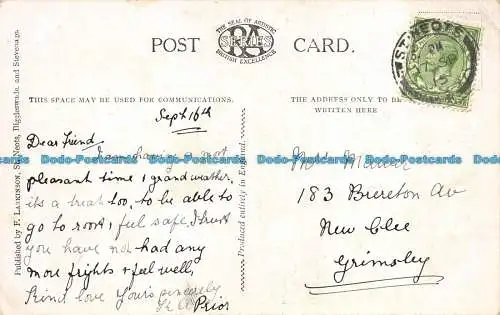 POST CARD.
THE SEAL OF ARTISTIC
RA
SERIES
BRITISH EXCELLENCE
THIS SPACE MAY BE USED FOR COMMUNICATIONS.
THE ADDRESS ONLY TO BE
WRITTEN HERE
ST NEOTS
Published by F. Lankinson, St. Neots, Biggleswade, and Stevenage.
Produced entirely in England.
Sept 16th
Dear Friend
I am having a most
pleasant time & grand weather,
its a treat too, to be able to
go to rest & feel safe, I trust
you have not had any
more frights & feel well,
Kind love Yours sincerely
Prior
183 Brereton Av
New Clee
Grimsby
Dodo-Postcards Dodo-Postcards Dodo-Postcards Dodo-Postcards Dodo-Postcards